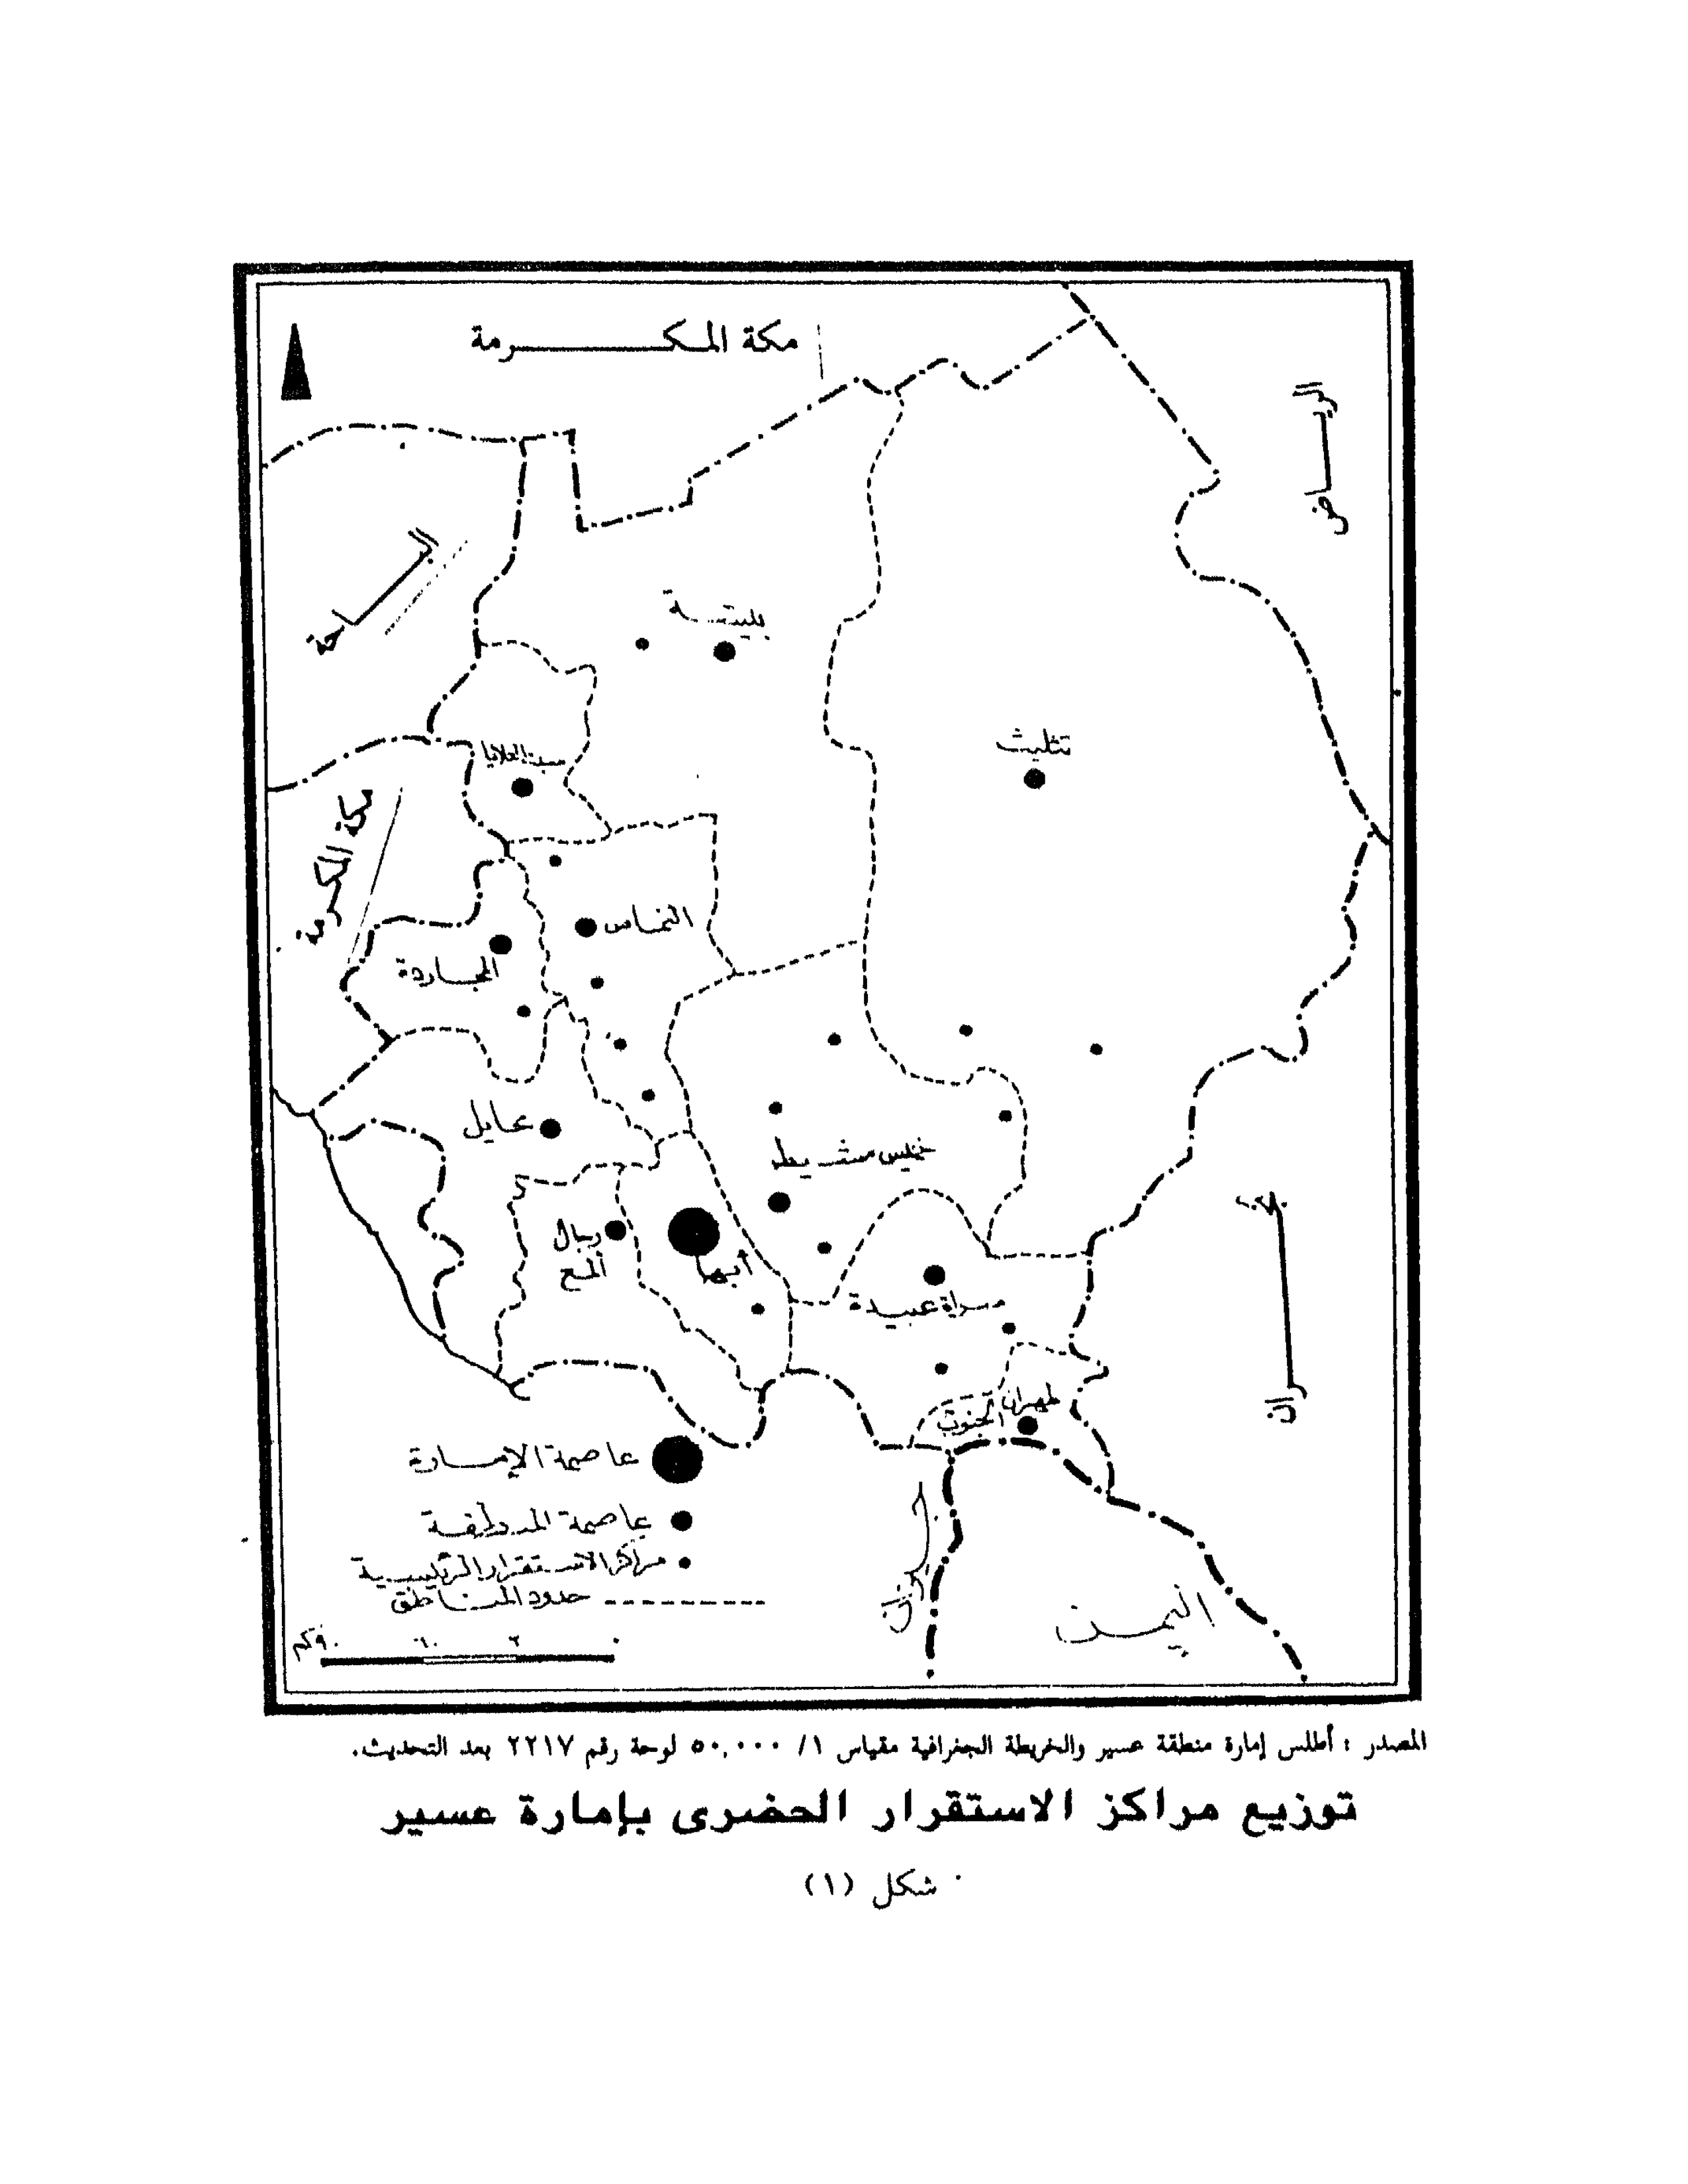 مكة المكرمة
الرياض
الباحة
بيشة
تثليث
سبت العلايا
مكة المكرمة
النماص
المجاردة
محايل
خميس مشيط
رجال
ألمع
أبها
سراة عبيدة
نجران
ظهران
الجنوب
جيزان
اليمن
عاصمة الإمارة
عاصمة المنطقة
مراكز الاستقرار الرئيسية
حدود المناطق
٩٠ كم ٦٠ ٣٠ ٠
المصدر : أطلس إمارة منطقة عسير والخريطة الجغرافية مقياس ١/ ٥٠,٠٠٠ لوحة رقم ٢٢١٧ بعد التحديث.
توزيع مراكز الاستقرار الحضرى بإمارة عسير
شكل (١)